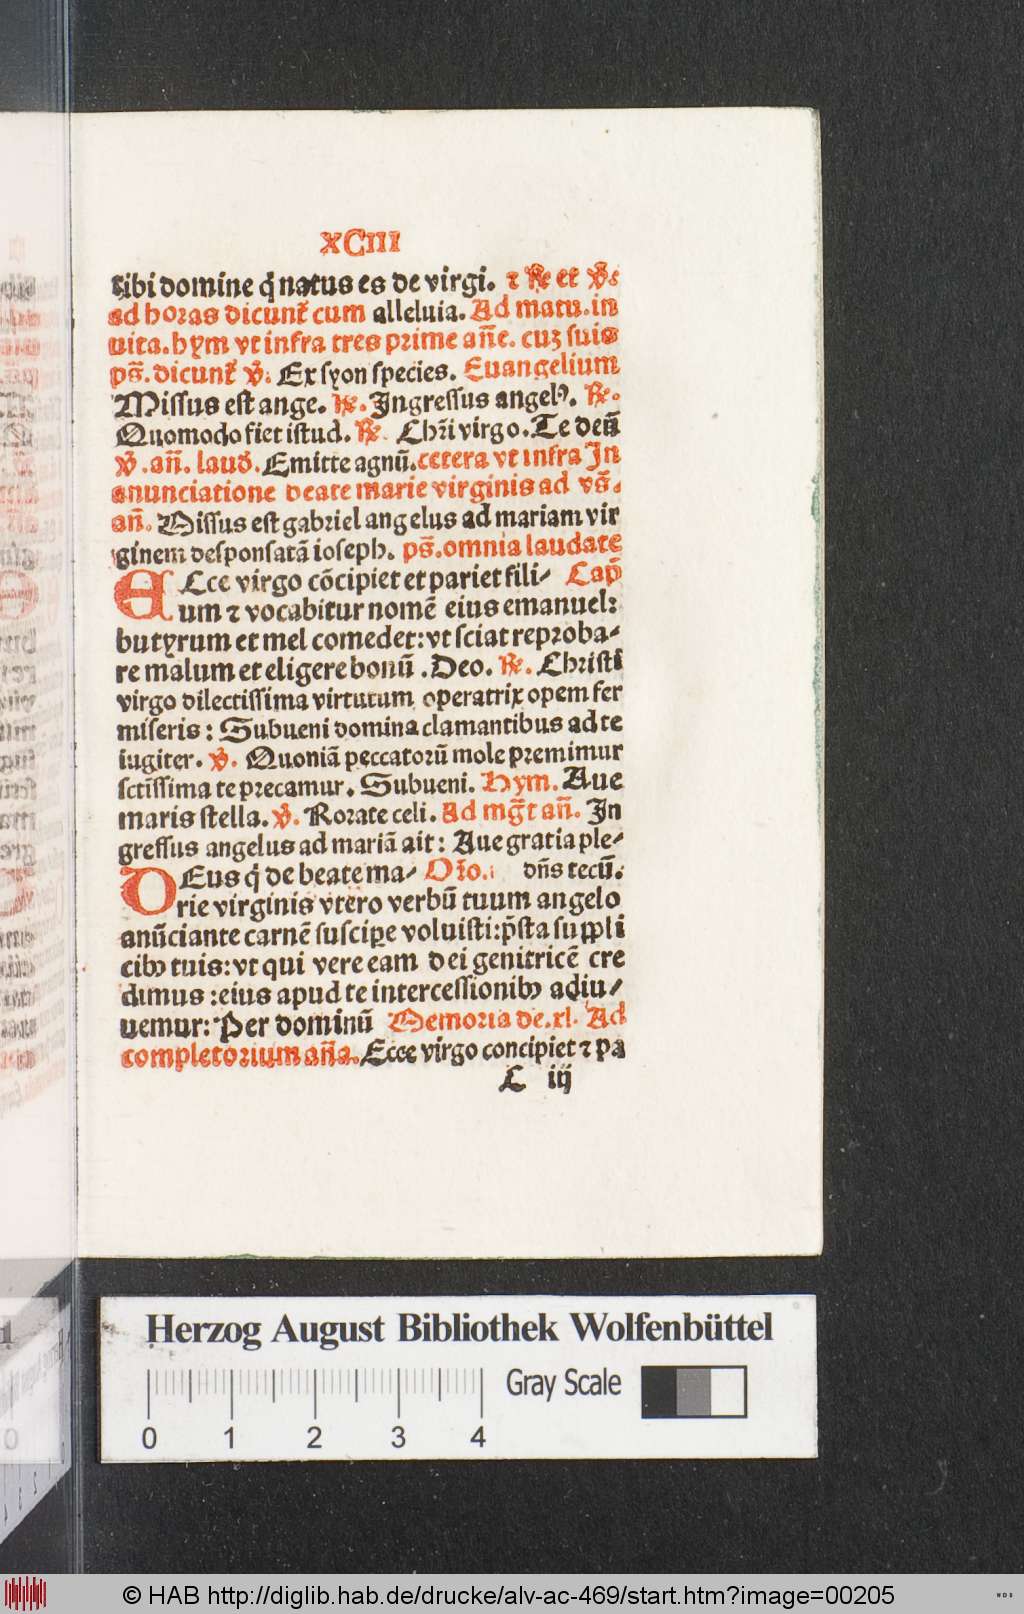 XCIII
tibi domine q̇ natus es de virgi. ⁊ ℟ et ℣.
ad horas dicunt̃ cum alleluia. Ad matu. in
uita. hym vt infra tres prime añe. cuʒ suis
ps̃. dicunt̃ ℣. Ex syon species. Euangelium
Missus est ange. ℟. Ingressus angelꝰ. ℟.
Quomodo fiet istud. ℟. Chr̃i virgo. Te deũ
℣. añ. laud̃. Emitte agnũ. cetera vt infra In
anunciatione beate marie virginis ad vs̃.
añ. Missus est gabriel angelus ad mariam vir
ginem desponsatã ioseph. ps̃. omnia laudate
ECce virgo cõcipiet et pariet fili⸗ Cap̃
um ⁊ vocabitur nomẽ eius emanuel:
butyrum et mel comedet: vt sciat reproba⸗
re malum et eligere bonũ. Deo. ℟. Christi
virgo dilectissima virtutum operatrix opem fer
miseris: Subueni domina clamantibus ad te
iugiter. ℣. Quoniã peccatorũ mole premimur
sctĩssima te precamur. Subueni. Hym. Aue
maris stella. ℣. Rorate celi. Ad mg̃t añ. In
gressus angelus ad mariã ait: Aue gratia ple⸗
DEus q̇ de beate ma⸗ Or̃o. dñs tecũ.
rie virginis vtero verbũ tuum angelo
anũciante carnẽ suscipe voluisti: p̃sta suppli
cibꝰ tuis: vt qui vere eam dei genitricẽ cre
dimus: eius apud te intercessionibꝰ adiu⸗
uemur: Per dominũ Memoria de. xl. Ad
completorium aña. Ecce virgo concipiet ⁊ pa
L iij
Herzog August Bibliothek Wolfenbüttel
Gray Scale
0 1 2 3 4
© HAB http://diglib.hab.de/drucke/alv-ac-469/start.htm?image=00205